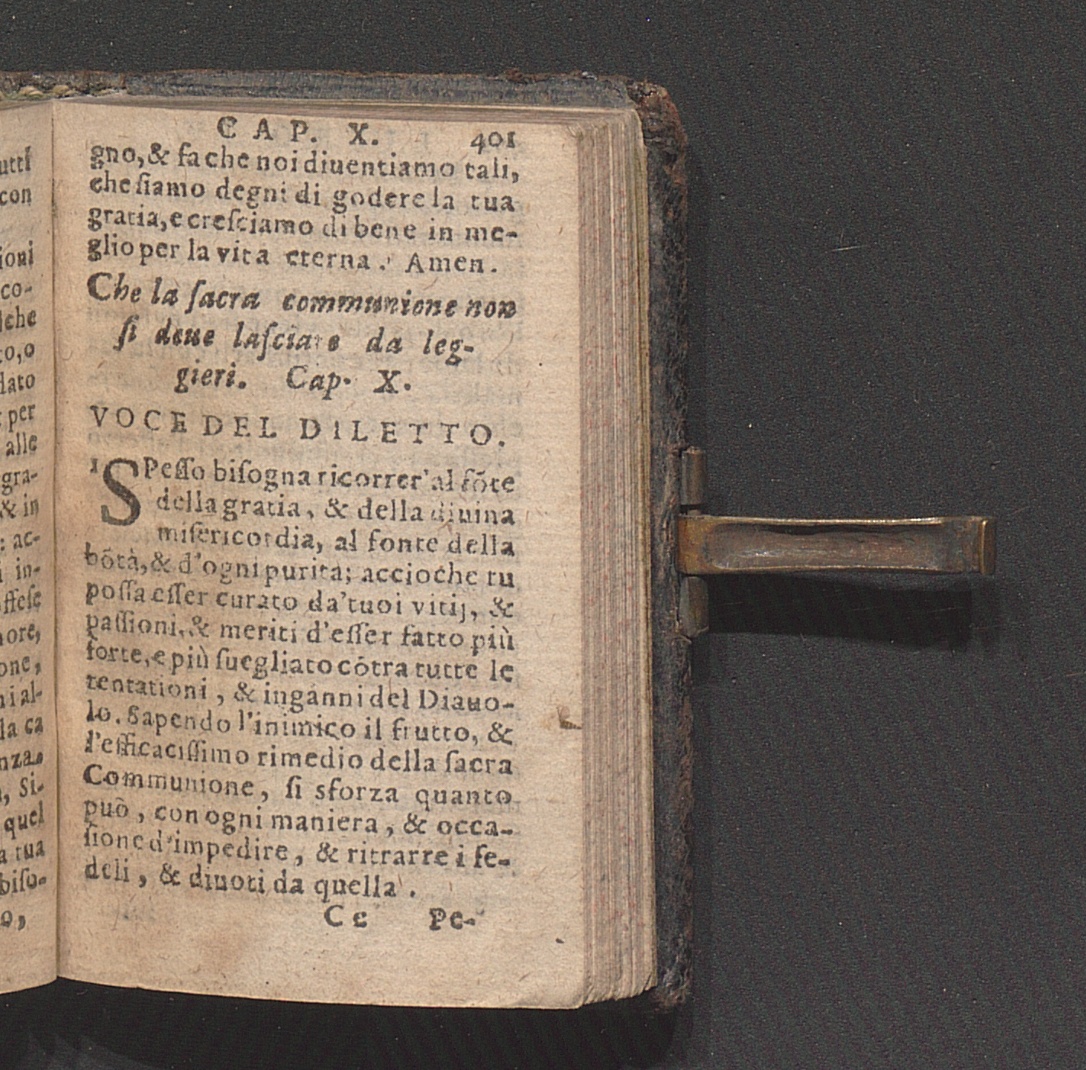 utti
con
ioni
co-
lche
to, o
dato
per
alle
gra-
& in
: ac-
i in-
offese
nore,
one,
ni al-
la ca
nza.
, Si-
quel
a tua
biso-
o,
CAP. X. 401
gno, & fa che noi diuentiamo tali,
che ſiamo degni di godere la tua
gratia, e creſciamo di bene in me-
glio per la vita eterna. Amen.
Che la ſacra communione non
ſi deue laſciare da leg-
gieri. Cap. X.
VOCE DEL DILETTO.
1 SPeſſo biſogna ricorrer' al fõte
della gratia, & della diuina
miſericordia, al fonte della
bõtà, & d'ogni purità; accioche tu
poſſa eſſer curato da' tuoi vitij, &
paſſioni, & meriti d'eſſer fatto più
forte, e più ſuegliato cõtra tutte le
tentationi, & inganni del Diauo-
lo. Sapendo l'inimico il frutto, &
l'efficaciſſimo rimedio della ſacra
Communione, ſi sforza quanto
può, con ogni maniera, & occa-
ſione d'impedire, & ritrarre i fe-
deli, & diuoti da quella.
Cc Pe-